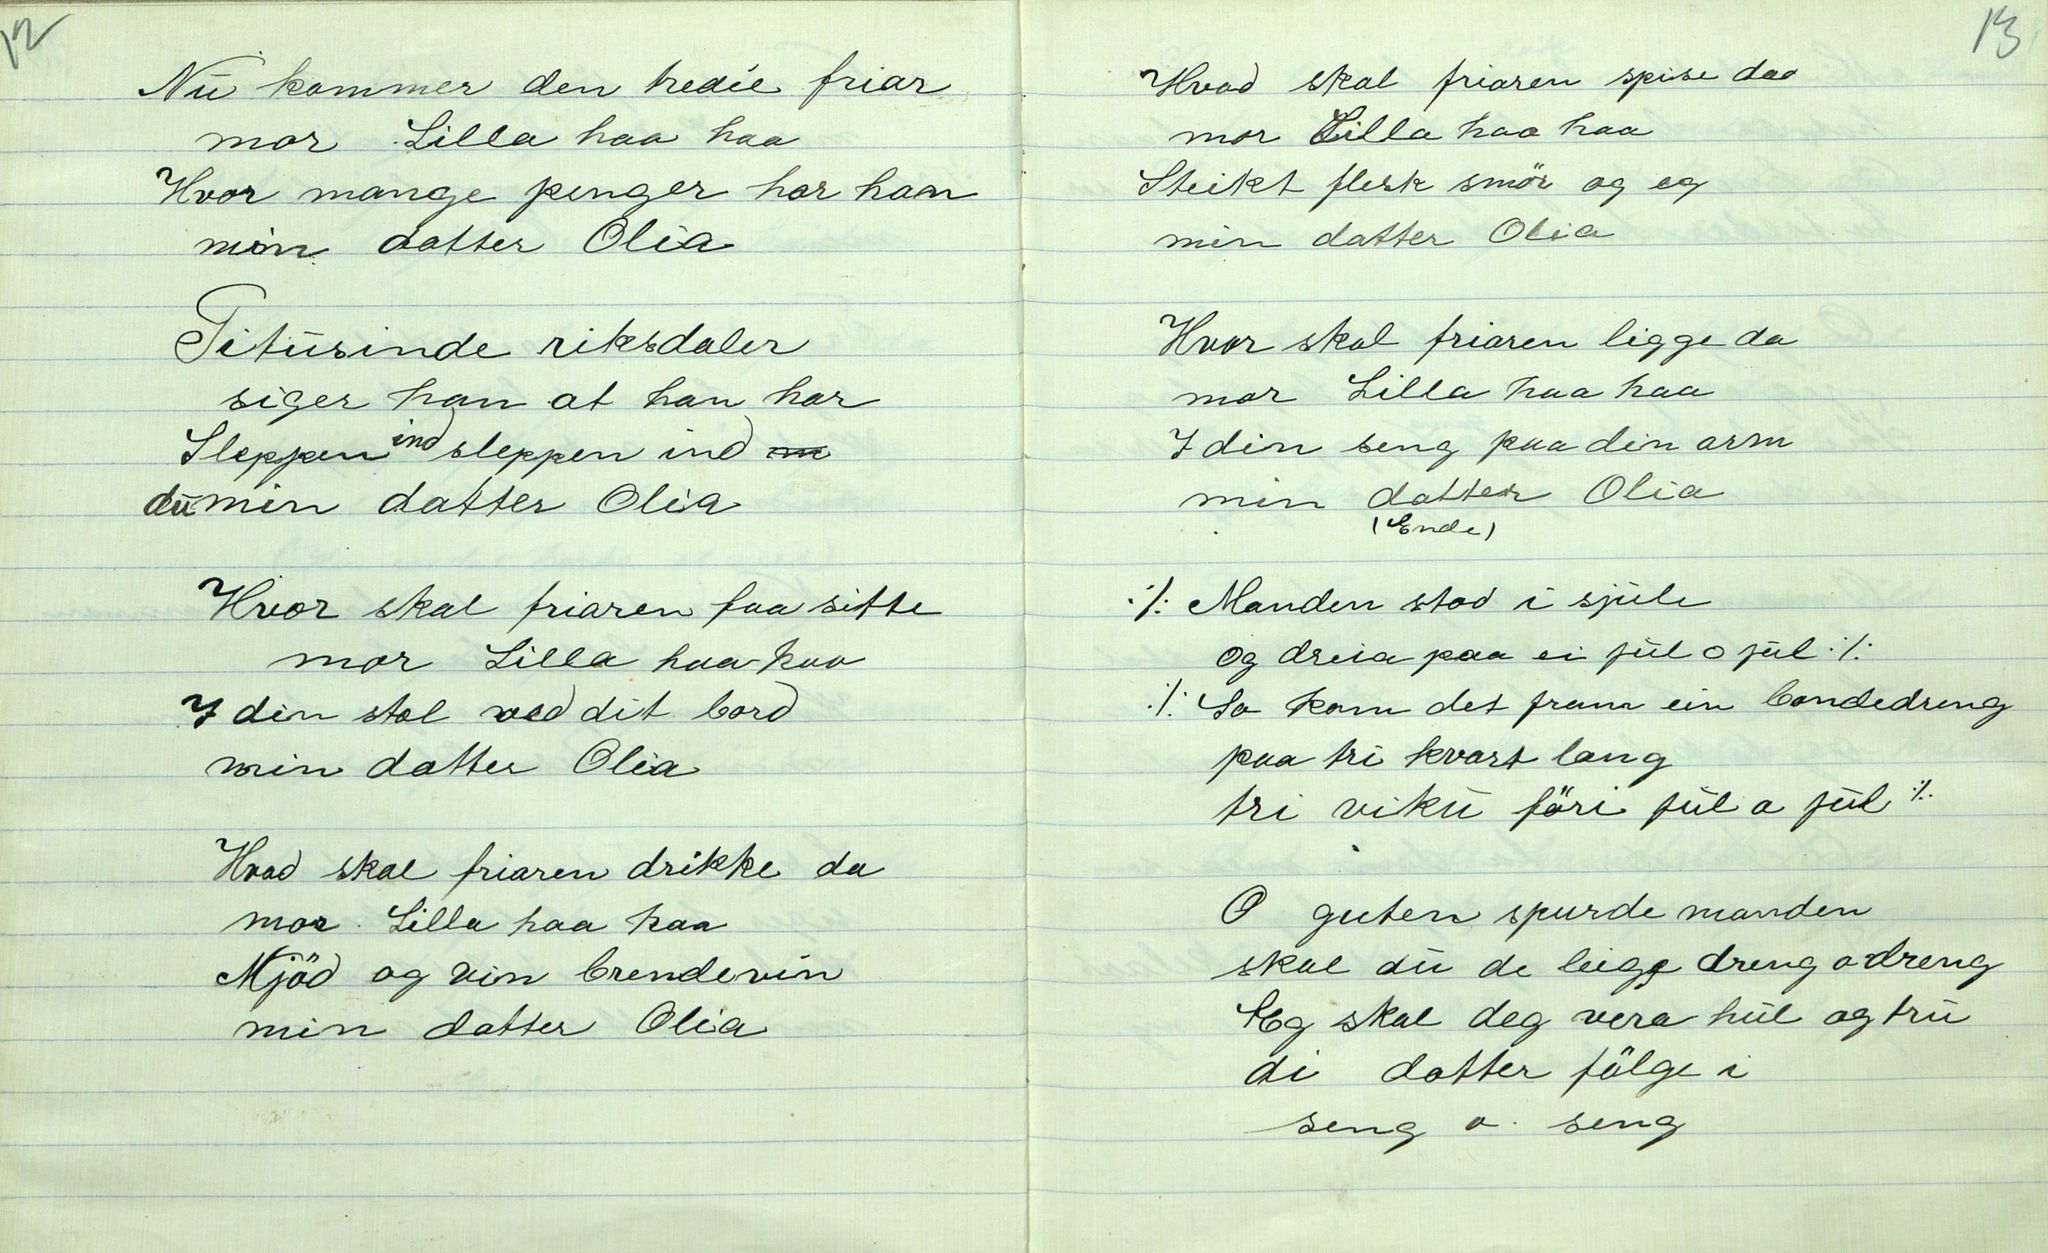 12
Nu kommer den tredie friar
mor Lilla haa haa
Hvor mange penger har han
min datter Olia
Titusinde riksdaler
siger han at han har
Sleppen ind sleppen ind
du min datter Olia
Hvor skal friaren faa sitte
mor Lilla haa haa
I din stol ved dit bord
min datter Olia
Hvad skal friaren drikke da
mor Lilla haa haa
Mjöd og vin brendevin
min datter Olia
13
Hvad skal friaren spise daa
mor Lilla haa haa
Steikt flesk smör og eg
min datter Olia
Hvor skal friaren ligge da
mor Lilla haa haa
I din seng paa din arm
min datter Olia
(Ende)
:/: Manden stod i sjule
og dreia paa ei jul o jul :/:
:/: So kom det fram ein bondedreng
paa tri kvart lang
tri viku föri jul o jul :/:
O guten spurde manden
skal du de leige dreng o dreng
Eg skal deg vera hul og tru
di dotter fölge i
seng o seng